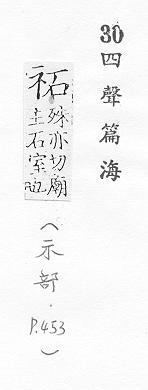 30 四聲篇海
祏
殊亦切廟
主石室也
(示部．P.453)